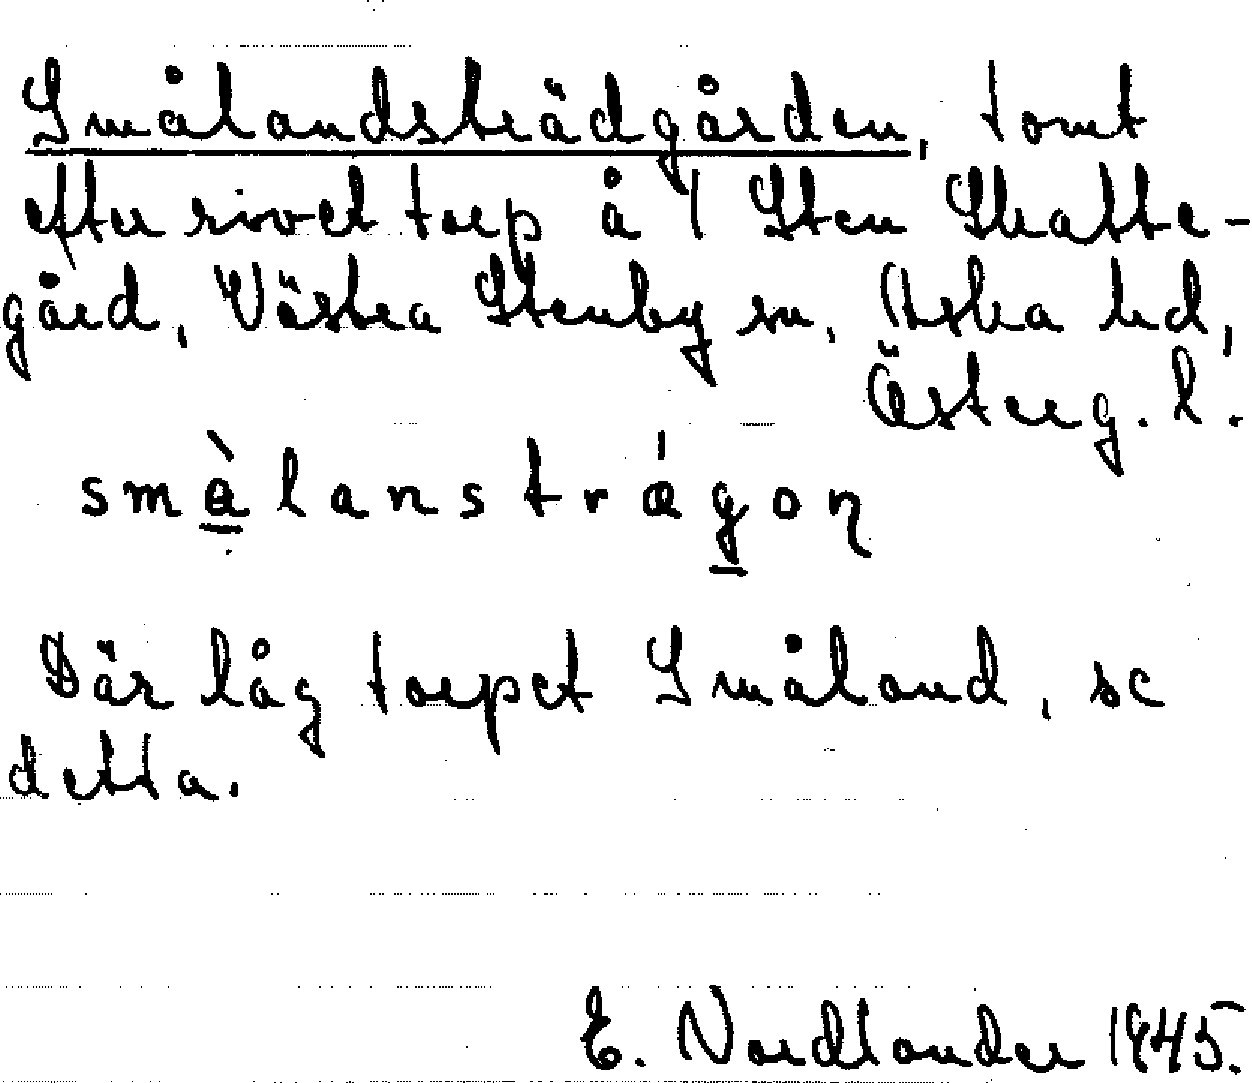 Smålandsträdgården, tomt
efter rivet torp å 1 Sten Skatte-
gård, Västra Stenby sn, Aska hd,
Österg. l.
småļanstrǽgon
Där låg torpet Småland, se
detta.
E. Nordlander 1945.